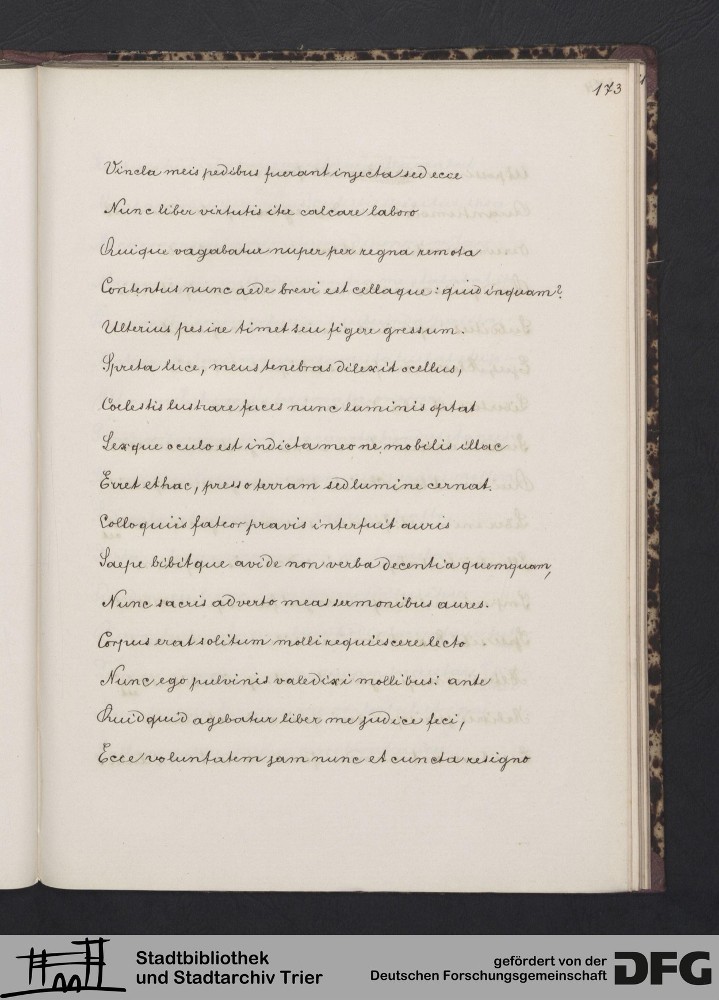 173
Vincla meis pedibus fuerant injecta sed ecce
Nunc liber virtutis iter calcare laboro
Quique vagabatur nuper per regna remota
Contentus nunc aede brevi est cellaque: quid inquam?
Ulterius pes ire timet seu figere gressum.
Spreta luce, meus tenebras dilexit ocellus,
Coelestis lustrare faces nunc luminis optat
Lexque oculo est indicta meo ne mobilis illac
Erret et hac, presso terram sed lumine cernat.
Colloquiis fateor pravis interfuit auris
Saepe bibitque avide non verba decentia quemquam,
Nunc sacris adverto meas sermonibus aures.
Corpus erat solitum molli requiescere lecto.
Nunc ego pulvinis valedixi mollibus: ante
Quidquid agebatur liber me judice feci,
Ecce voluntatem jam nunc et cuncta resigno
Stadtbibliothek
und Stadtarchiv Trier
gefördert von der
Deutschen Forschungsgemeinschaft
DFG